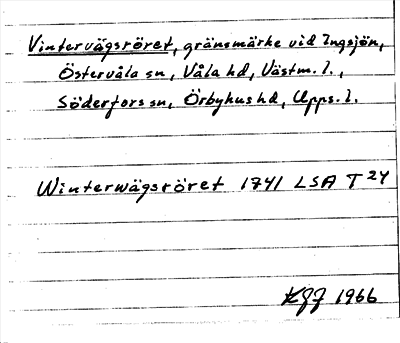 Vintervägsröret, gränsmärke vid Ingsjön,
Östervåla sn, Våla hd, Västm. l.,
Söderfors sn, Örbyhus hd, Upps. l.
Winterwägsröret 1741 LSA T 24
KGJ 1966